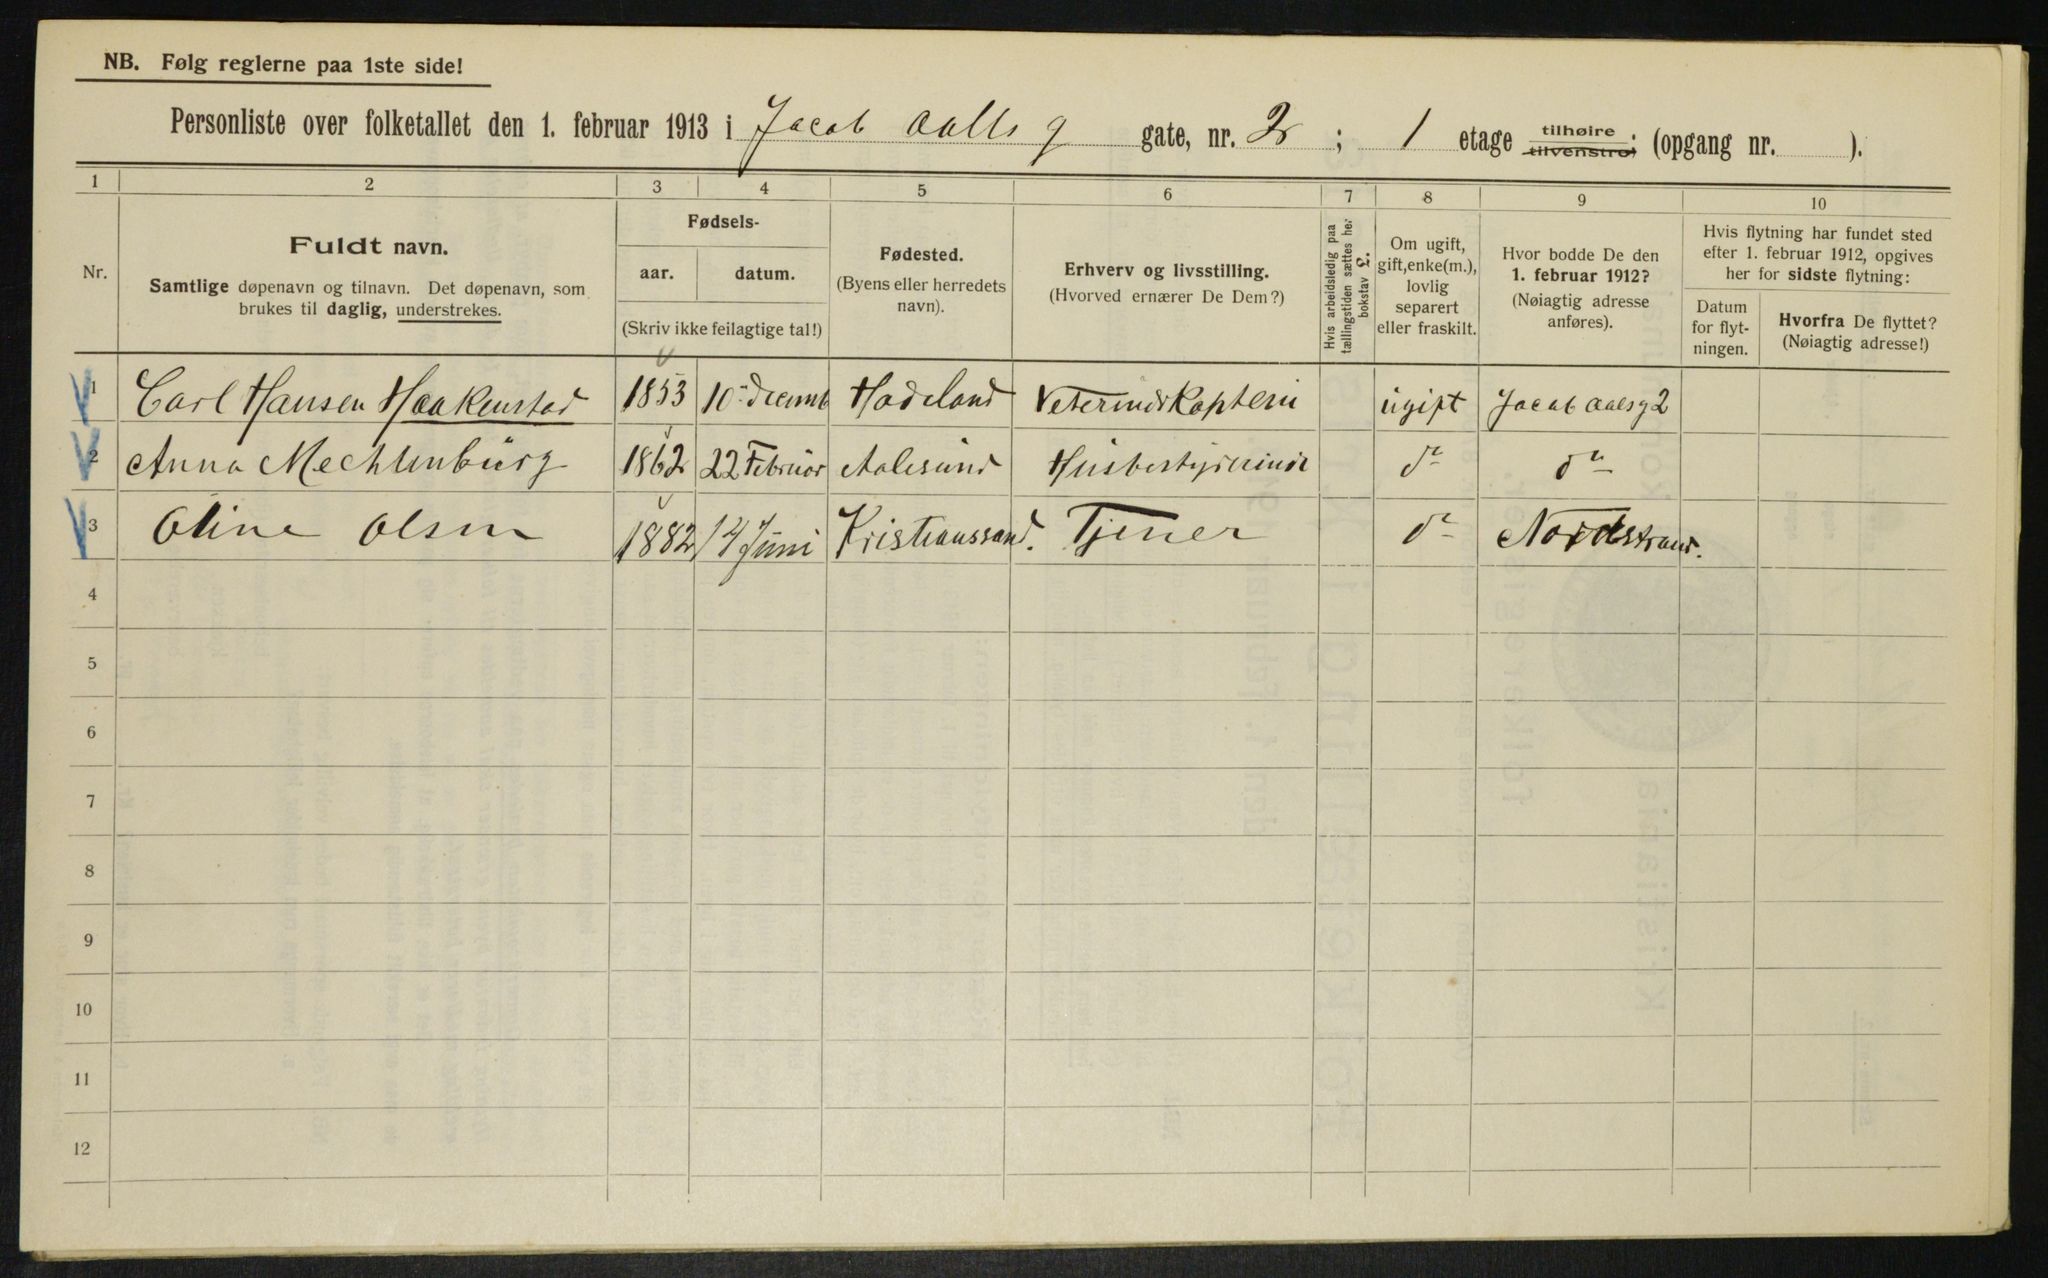 NB. Følg reglerne paa 1ste side!
Personliste over folketallet den 1. februar 1913 i Jacob Aalls g gate, nr. 2 ; 1 etage tilhøire tilvenstre; (opgang nr. ).
1 2 3 4 5 6 7 8 9 10
Nr.
Fuldt navn.
Samtlige døpenavn og tilnavn. Det døpenavn, som
brukes til daglig, understrekes.
Fødsels-
aar. datum.
(Skriv ikke feilagtige tal!)
Fødested.
(Byens eller herredets
navn).
Erhverv og livsstilling.
(Hvorved ernærer De Dem?)
Hvis arbeidsledig paa
tællingstiden sættes her
bokstav L.
Om ugift,
gift, enke(m.),
lovlig
separert
eller fraskilt.
Hvor bodde De den
1. februar 1912?
(Nøiagtig adresse
anføres).
Hvis flytning har fundet sted
efter 1. februar 1912, opgives
her for sidste flytning:
Datum
for flyt-
ningen.
Hvorfra De flyttet?
(Nøiagtig adresse!)
1 Carl Hansen Haakenstad 1853 10 decemb Hadeland Veterinærkaptein ugift Jacob Aalsg 2
2 Anna Mechlenburg 1862 22 Februar Aalesund Husbestyrerinde do do
3 Oline Olsen 1882 14 Juni Kristianssand. Tjener do Nordstrand.
4
5
6
7
8
9
10
11
12